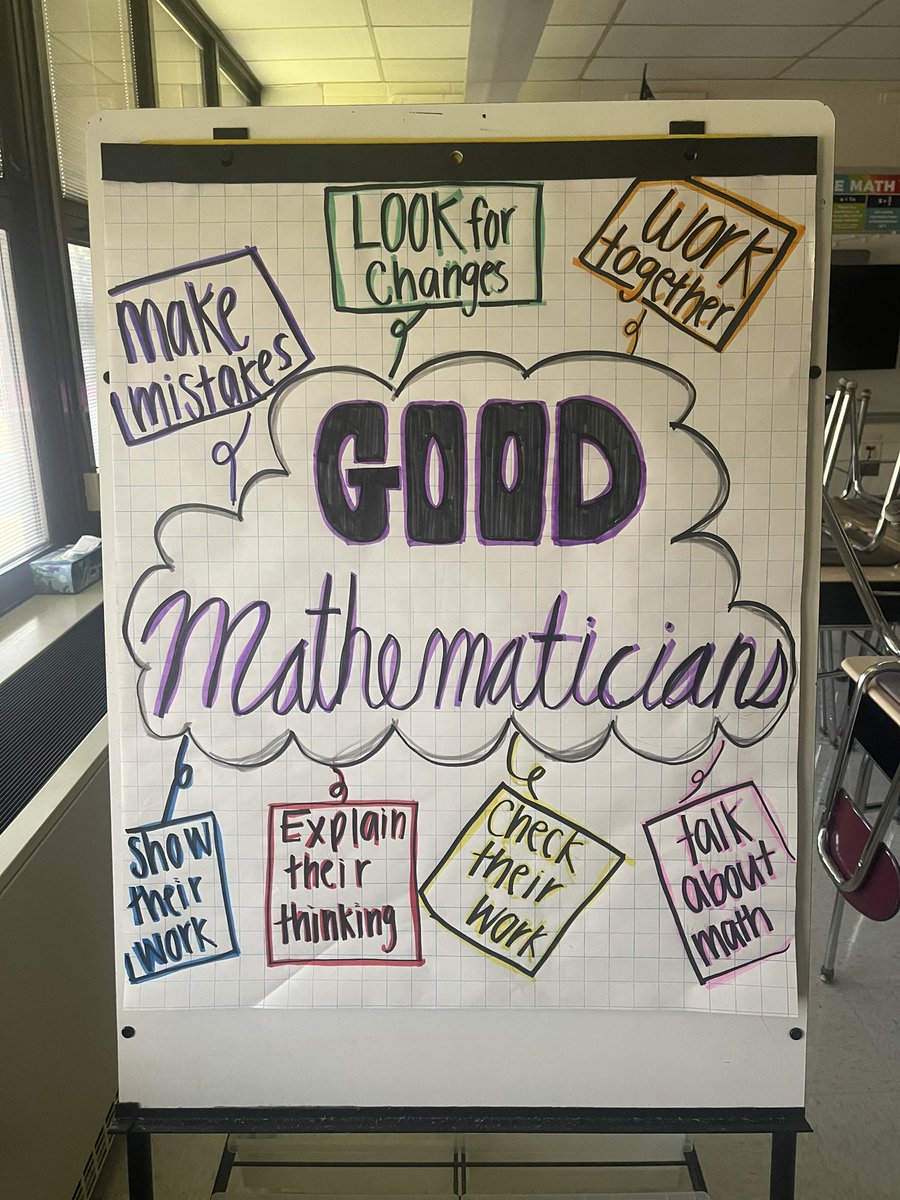 LOOK for
changes
work
together
make
mistakes
GOOD
mathematicians
show
their
work
Explain
their
thinking
Check
their
work
talk
about
math
E MATH